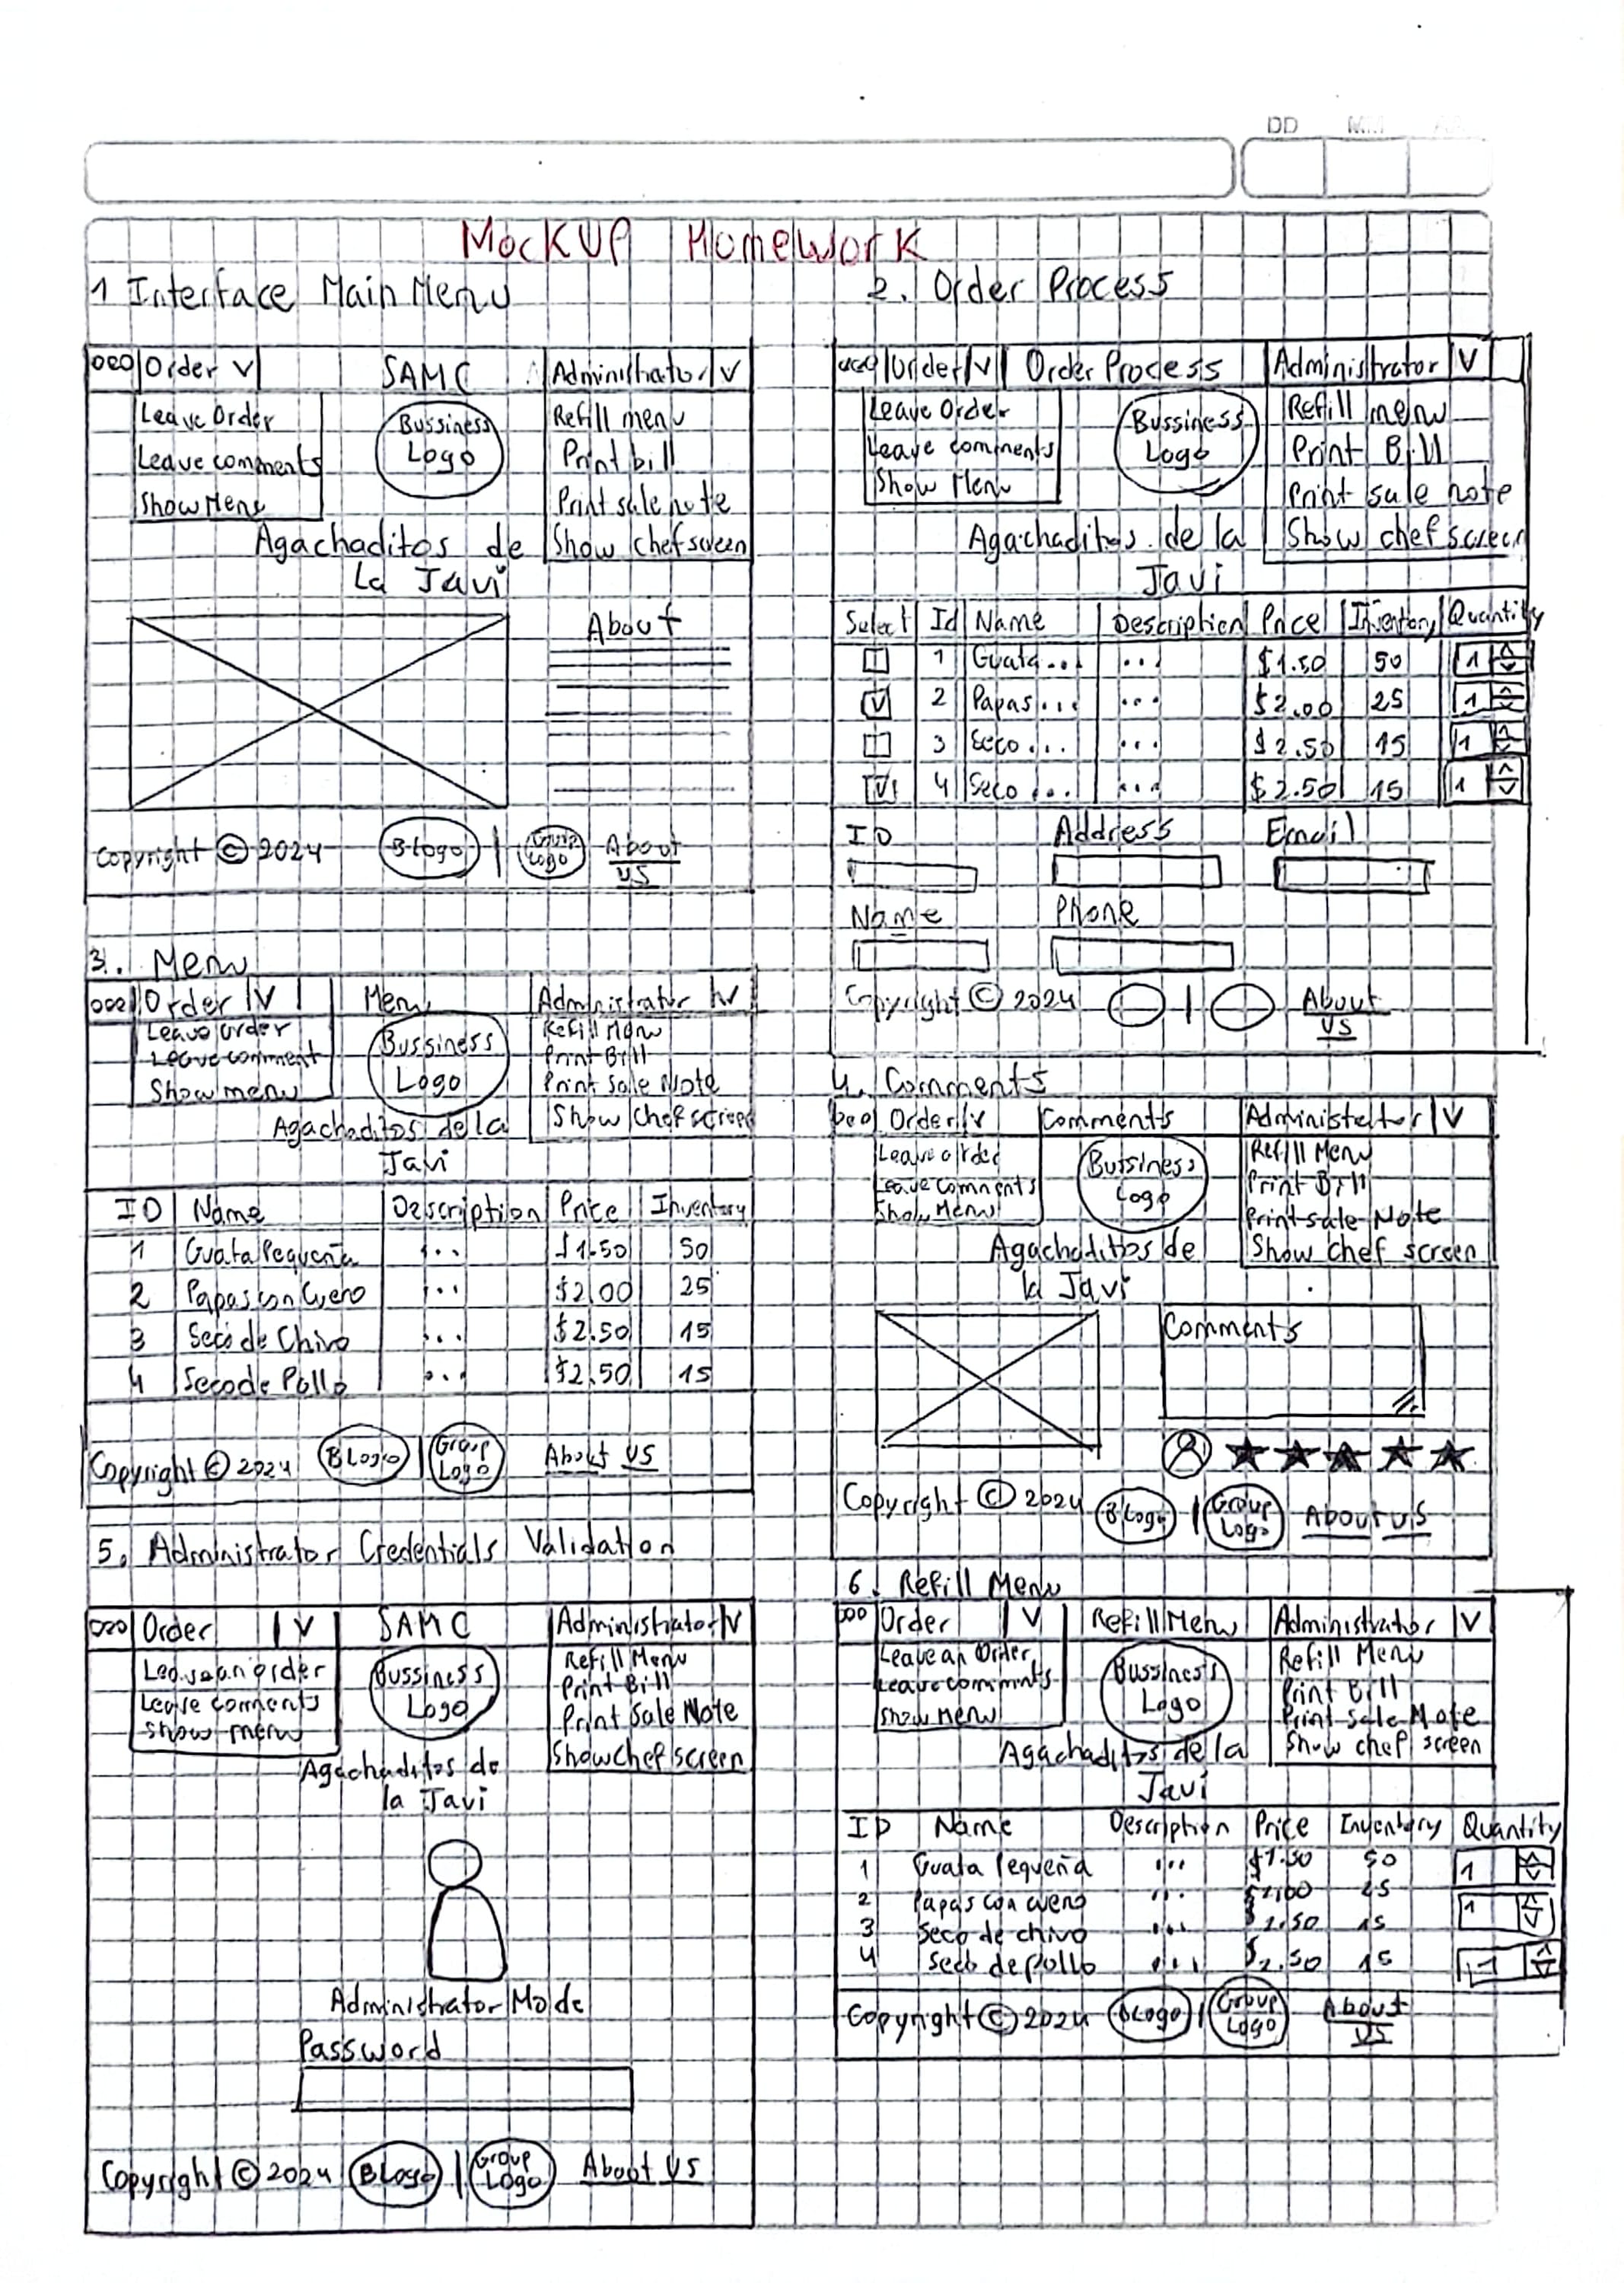 DD MM
Mockup Homework
1 Interface Main Menu
000 Order V SAMC Administrator V
Leave Order
Leave comments
Show Menu
Bussiness
Logo
Refill menu
Print bill
Print sale note
Show chef screen
Agachaditos de
La Javi
About
Copyright © 2024 B-Logo | Group Logo About
US
2. Order Process
000 Order V Order Process Administrator V
Leave Order
Leave comments
Show Menu
Bussiness
Logo
Refill menu
Print Bill
Print sale note
Show chef screen
Agachaditos de la
Javi
Select Id Name Description Price Inventory Quantity
1 Guata... ... $1.50 50 1
V 2 Papas... ... $2.00 25 1
3 Seco... ... $2.50 15 1
V 4 Seco... ... $2.50 15 1
ID Address Email
Name Phone
Copyright © 2024 | About
US
3. Menu
000 Order V Menu Administrator V
Leave order
Leave comment
Show menu
Bussiness
Logo
Refill Menu
Print Bill
Print Sale Note
Show Chef screen
Agachaditos de la
Javi
ID Name Description Price Inventory
1 Guata Pequeña ... $1.50 50
2 Papas con Cuero ... $2.00 25
3 Seco de Chivo ... $2.50 15
4 Seco de Pollo ... $2.50 15
Copyright © 2024 B Logo | Group Logo About US
4. Comments
000 Order V Comments Administrator V
Leave order
Leave comments
Show Menu
Bussiness
Logo
Refill Menu
Print Bill
Print sale Note
Show chef screen
Agachaditos de
la Javi
Comments
Copyright © 2024 B Logo | Group Logo About US
5. Administrator Credentials Validation
000 Order V SAMC Administrator V
Leave an order
Leave comments
Show menu
Bussiness
Logo
Refill Menu
Print Bill
Print Sale Note
Show Chef screen
Agachaditos de
la Javi
Administrator Mode
Password
Copyright © 2024 B Logo | Group Logo About US
6. Refill Menu
000 Order V Refill Menu Administrator V
Leave an Order
Leave comments
Show menu
Bussiness
Logo
Refill Menu
Print Bill
Print Sale Note
Show chef screen
Agachaditos de la
Javi
ID Name Description Price Inventory Quantity
1 Guata Pequeña ... $1.50 50 1
2 Papas con cuero ... $2.00 25 1
3 Seco de chivo ... $2.50 15
4 Seco de pollo ... $2.50 15 1
Copyright © 2024 B Logo | Group Logo About
US